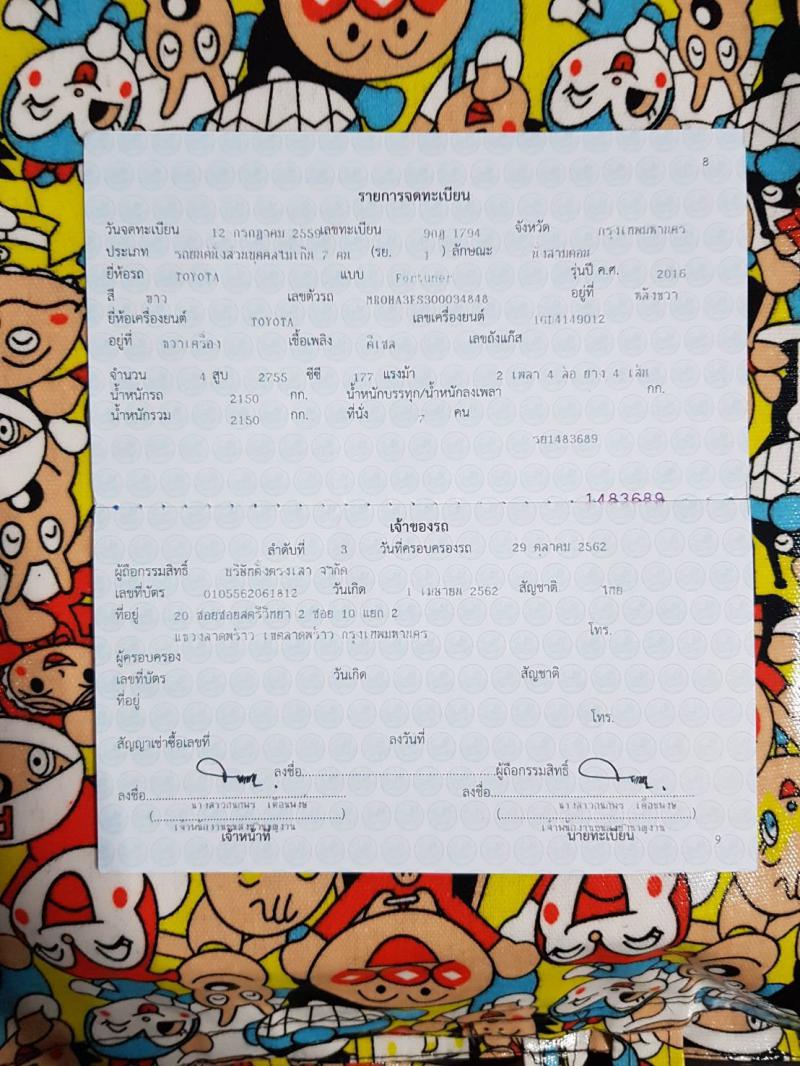 8
รายการจดทะเบียน
วันจดทะเบียน 12 กรกฎาคม 2559 เลขทะเบียน 9กฎ 1794 จังหวัด กรุงเทพมหานคร
ประเภท รถยนต์นั่งส่วนบุคคลไม่เกิน 7 คน (รย. 1 ) ลักษณะ นั่งสามตอน
ยี่ห้อรถ TOYOTA แบบ Fortuner รุ่นปี ค.ศ. 2016
สี ขาว เลขตัวรถ MR0HA3FS300034848 อยู่ที่ หลังขวา
ยี่ห้อเครื่องยนต์ TOYOTA เลขเครื่องยนต์ 1GD4149012
อยู่ที่ ขวาเครื่อง เชื้อเพลิง ดีเซล เลขถังแก๊ส
จำนวน 4 สูบ 2755 ซีซี 177 แรงม้า 2 เพลา 4 ล้อ ยาง 4 เส้น
น้ำหนักรถ 2150 กก. น้ำหนักบรรทุก/น้ำหนักลงเพลา กก.
น้ำหนักรวม 2150 กก. ที่นั่ง 7 คน
1483689
1483689
เจ้าของรถ
ลำดับที่ 3 วันที่ครอบครองรถ 29 ตุลาคม 2562
ผู้ถือกรรมสิทธิ์ บริษัทตั้งตรงเสา จำกัด
เลขที่บัตร 0105562061812 วันเกิด 1 เมษายน 2562 สัญชาติ ไทย
ที่อยู่ 20 ซอยซอยสตรีวิทยา 2 ซอย 10 แยก 2
แขวงลาดพร้าว เขตลาดพร้าว กรุงเทพมหานคร โทร.
ผู้ครอบครอง
เลขที่บัตร วันเกิด สัญชาติ
ที่อยู่
โทร.
สัญญาเช่าซื้อเลขที่ ลงวันที่
ลงชื่อ ผู้ถือกรรมสิทธิ์
ลงชื่อ ลงชื่อ
เจ้าหน้าที่ นายทะเบียน
9